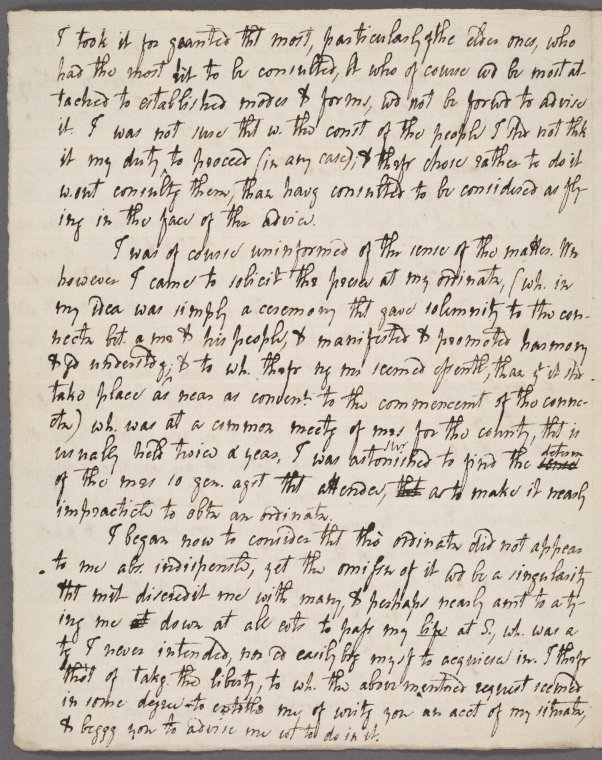 I took it for granted tht most, particularly of the elder ones, who
had the most rit to be consulted, & who of course wd be most at-
tached to established modes & forms, wd not be forwd to advise
it. I was not sure tht w. the const of the people I shd not thk
it my duty to proceed (in any case); & thrfr chose rather to do it
w.out consultg them, than havg consulted to be considered as fly-
ing in the face of thr advice.
I was of course uninformed of thr sense of the matter. Wn
however I came to solicit thr presce at my ordinatn, (wh. in
my idea was simply a ceremony tht gave solemnity to the con-
nectn bet. a mr & his people, & manifested & promoted harmony
& gd understdg; & to wh. thrfr no mr seemed essentl, than yt it shd
take place as near as convent. to the commencemt of the conne-
ctn) wh. was at a common meetg of mrs for the county, tht is
usually held twice a year, I was astonished to find the
of the mrs so gen. agst tht attendce, as to make it nearly
impracticle to obtn an ordinatn.
I began now to consider tht tho' ordinatn did not appear
to me abs. indispensle, yet the omissn of it wd be a singularity
tht mit discredit me with many, & perhaps nearly amt to a ty-
ing me down at all evts to pass my life at S., wh. was a
tg I never intended, nor cd easily bg myself to acquiesce in. I thrfr
thot of takg the liberty, to wh. the above mentned request seemed
in some degree to entitle me of writg you an acct of my situatn,
& beggg you to advise me wt to do in it.